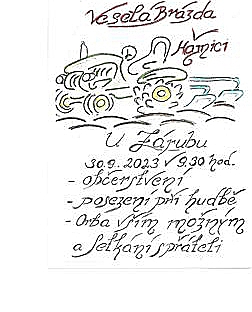 Veselá Brázda
v
Hamici
U Zárubu
30.9. 2023 v 9,30 hod.
- občerstvení
- posezení při hudbě
- Orba vším možným
a setkání s přáteli